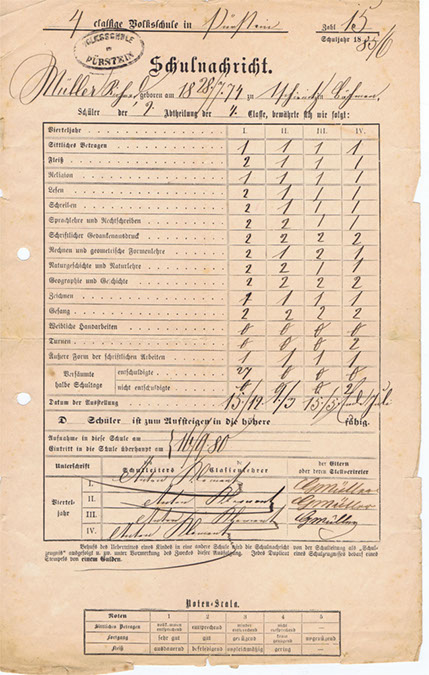 4 classige Volksschule in Pürstein Zahl 15
Schuljahr 188 5/6
VOLKSSCHULE
in
PÜRSTEIN
Schulnachricht.
Müller geboren am 18 28/7. 74 zu Böhmen,
Schüler der 2. Abtheilung der 4. Classe, bewährte sich wie folgt:
Vierteljahr I. II. III. IV.
Sittliches Betragen 1 1 1 1
Fleiß 2 1 1 1
Religion 1 1 1 1
Lesen 2 1 1 1
Schreiben 2 1 1 1
Sprachlehre und Rechtschreiben 2 2 1 1
Schriftlicher Gedankenausdruck 2 2 2 2
Rechnen und geometrische Formenlehre 2 1 2 1
Naturgeschichte und Naturlehre 2 2 1 1
Geographie und Geschichte 2 2 1 1
Zeichnen 1 1 1 1
Gesang 2 2 2 2
Weibliche Handarbeiten 0 0 0 0
Turnen 0 0 0 2
Äußere Form der schriftlichen Arbeiten 1 1 1 1
Versäumte halbe Schultage
entschuldigte 27 0 0 0
nicht entschuldigte 0 0
Datum der Ausstellung 15/12. 9/3 15./5.
D Schüler ist zum Aufsteigen in die höhere fähig.
Aufnahme in diese Schule am
Eintritt in die Schule überhaupt am 16/9 80
Unterschrift des Schulleiters des Classenlehrers der Eltern oder deren Stellvertreter
Viertel-
jahr
I. Anton Klement Müller
II. Anton Klement Müller
III. Anton Klement Müller
IV. Anton Klement
Behufs des Uebertrittes eines Kindes in eine andere Schule wird die Schulnachricht von der Schulleitung als „Schul-
zeugniß“ ausgefertigt u. zw. unter Vormerkung des Zweckes dieser Ausfolgung. Jedes Duplicat eines Schulzeugnisses bedarf eines
Stempels von einem Gulden.
Noten-Scala.
Noten 1 2 3 4 5
Sittliches Betragen vollkommen entsprechend entsprechend minder entsprechend nicht entsprechend
Fortgang sehr gut gut genügend kaum genügend ungenügend
Fleiß ausdauernd befriedigend ungleichmäßig gering